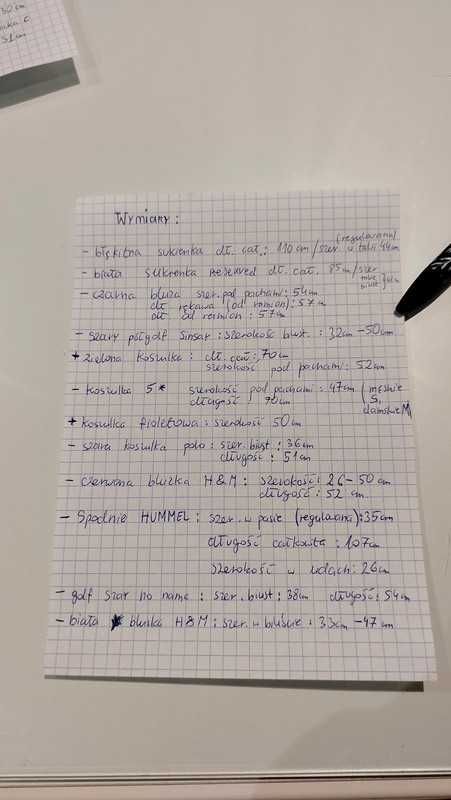 50 cm
51 cm
Wymiary:
(regulowana)
- błękitna sukienka dł. cał.: 110 cm / szer. w talii 44cm
- biała sukienka Reserved dł. cał. 85 cm / szer
biust
- czarna bluza szer. pod pachami: 54cm
dł. rękawa (od ramion): 57cm
dł. od ramion: 57cm
- szary półgolf Sinsay: szerokość biust.: 32cm - 50cm
+ zielona koszulka: dł. cał: 70cm
szerokość pod pachami: 52cm
- koszulka 5* szerokość pod pachami: 47cm (męskie
długość 70cm S,
damskie M)
+ koszulka fioletowa: szerokość 50cm
- szara koszulka polo: szer. biust: 36cm
długość: 51cm
- czerwona bluzka H&M: szerokość: 26 - 50 cm
długość: 52 cm
- Spodnie HUMMEL: szer. w pasie (regulowana): 35cm
długość całkowita: 107cm
szerokość w udach: 26cm
- golf szar no name: szer. biust: 38cm długość: 54cm
- biała bluzka H&M: szer. w biuście: 33cm - 47cm